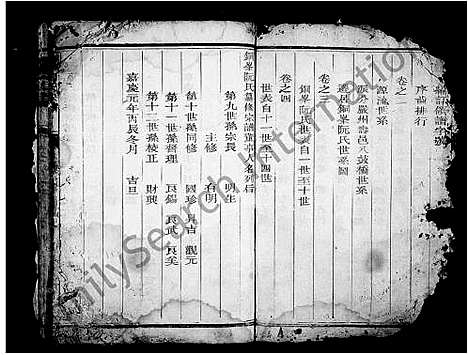 序 排行
卷之二
源流世系
嚴州壽邑八鼓橋世系
遷居銅峯阮氏世系圖
卷之三
銅峯阮氏世系自一世至十世
卷之四
世表自十一世至 世
銅峯阮氏纂修宗譜董事人名列后
主修
第九世孫宗長 明生 有明
第十世孫同修 國珍 良吉 觀元
第十一世孫督理 良錫 良武 良矣
第十二世孫校正 財璁
嘉慶元年丙辰冬月 吉旦
FamilySearch International